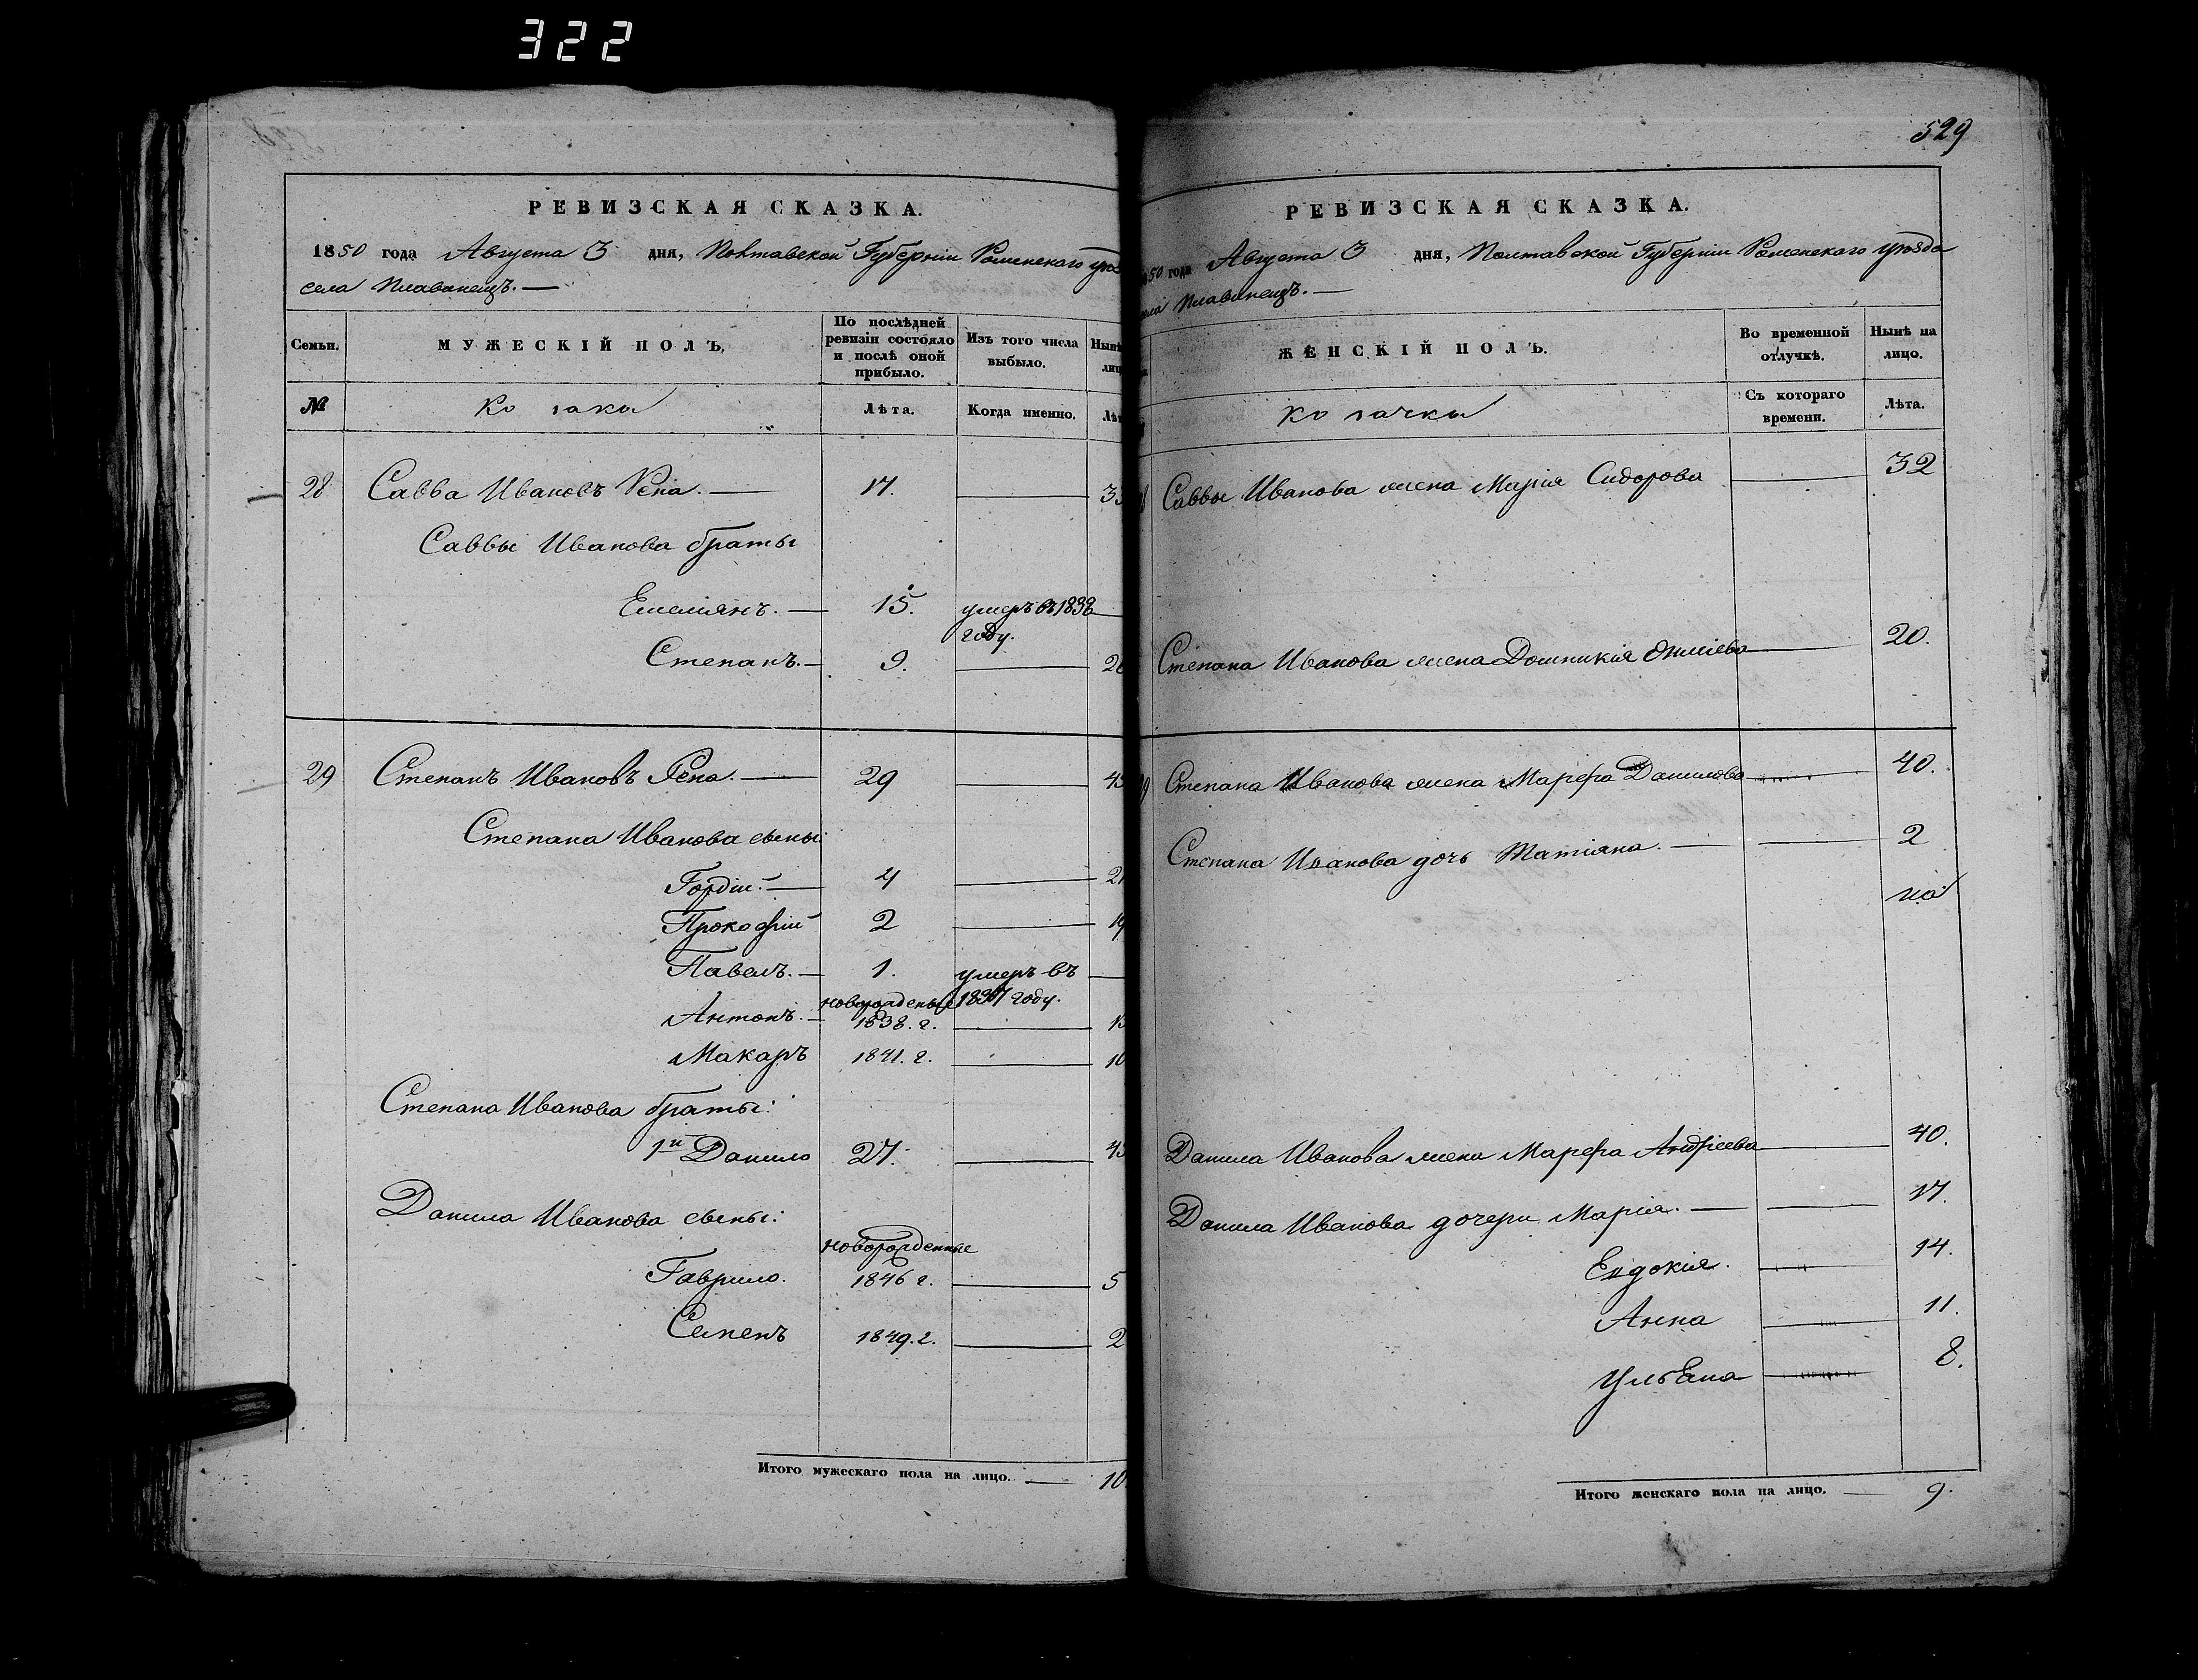 322
РЕВИЗСКАЯ СКАЗКА.
1850 года Августа 3 дня, Полтавской Губерніи Роменскаго уѣз
села Плавинещъ. —
Семьи. МУЖЕСКІЙ ПОЛЪ. По послѣдней ревизіи состояло и послѣ оной прибыло. Изъ того числа выбыло. Нынѣ лиц
№ Козаки Лѣта. Когда именно. Лѣт
28 Савва Ивановъ Репа. — 17. — 33
Саввы Иванова браты
Емелиянъ. — 15. умеръ въ 1838 году. —
Степанъ. — 9. — 26
29 Степанъ Ивановъ Репа. — 29 — 45
Степана Иванова сыны:
Гордій. — 4 — 21
Прокофій 2 — 19
Павелъ. — 1. умеръ въ 1837 году. —
Антонъ. — новорожденые 1838. г. — 13
Макаръ 1841. г. — 10
Степана Иванова браты:
1й Данило 27. — 43
Данила Иванова сыны:
новорожденные
Гаврило. 1846 г. — 5
Семенъ 1849. г. — 2
Итого мужескаго пола на лицо. — 10
529
РЕВИЗСКАЯ СКАЗКА.
50 года Августа 3 дня, Полтавской Губерніи Роменскаго уѣзда
ела Плавинещъ. —
ЖЕНСКІЙ ПОЛЪ. Во временной отлучкѣ. Нынѣ на лицо.
Козачки Съ котораго времени. Лѣта.
Саввы Иванова жена Марія Сидорова — 32
Степана Иванова жена Домникія — 20.
Степана Иванова жена Марфа Данилова — 40.
Степана Иванова дочь Татіяна. — — 2
Данила Иванова жена Марфа Андріева — 40.
Данила Иванова дочери Марія. — — 17.
Евдокія. — 14.
Анна — 11.
Ульяна — 8.
Итого женскаго пола на лицо. — 9.